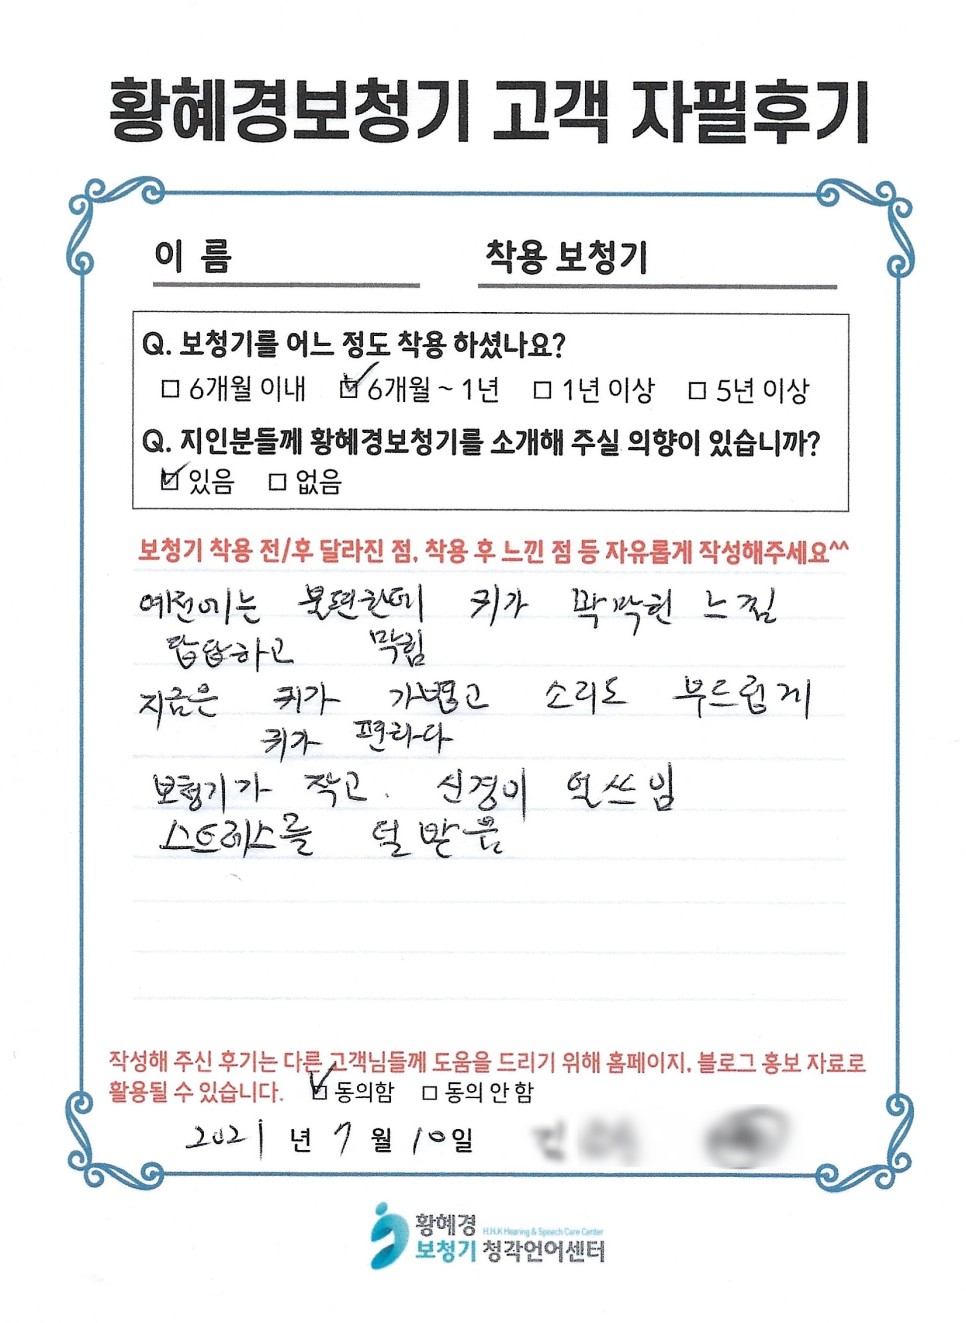 황혜경보청기 고객 자필후기
이 름 착용 보청기
Q. 보청기를 어느 정도 착용 하셨나요?
□ 6개월 이내 ☑ 6개월 ~ 1년 □ 1년 이상 □ 5년 이상
Q. 지인분들께 황혜경보청기를 소개해 주실 의향이 있습니까?
☑ 있음 □ 없음
보청기 착용 전/후 달라진 점, 착용 후 느낀 점 등 자유롭게 작성해주세요^^
예전에는 불편한데 귀가 꽉막힌 느낌
답답하고 막힘
지금은 귀가 가볍고 소리도 부드럽게
귀가 편하다
보청기가 작고. 신경이 얼쓰임
스트레스를 덜 받음
작성해 주신 후기는 다른 고객님들께 도움을 드리기 위해 홈페이지, 블로그 홍보 자료로
활용될 수 있습니다. ☑ 동의함 □ 동의 안 함
2021년 7월 10일
황혜경 H.H.K Hearing & Speech Care Center
보청기 청각언어센터